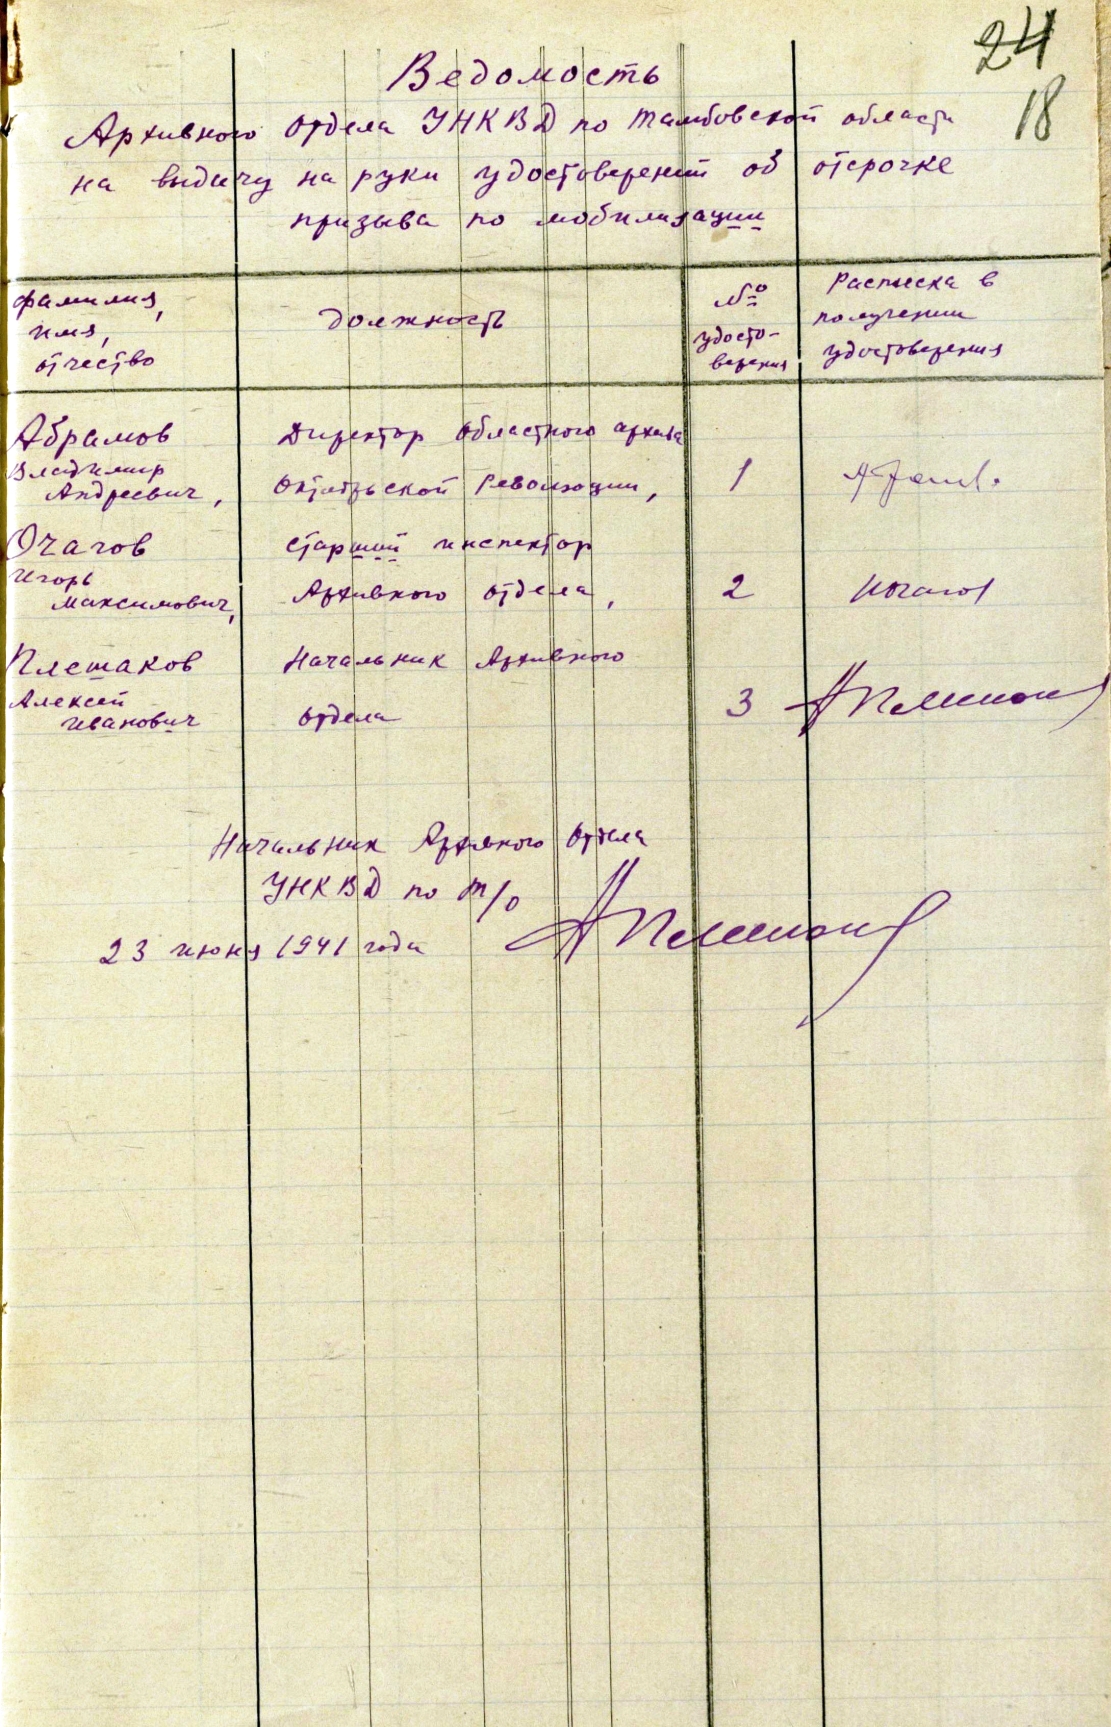 24
18
Ведомость
Архивного отдела УНКВД по Тамбовской области
на выдачу на руки удостоверений об отсрочке
призыва по мобилизации
фамилия,
имя,
отчество
должность
№
удосто-
верения
Расписка в
получении
удостоверения
Абрамов
Владимир
Андреевич,
Директор областного архива
Октябрьской Революции,
1
Очагов
Игорь
Максимович,
Старший инспектор
Архивного отдела,
2
Иочагов
Плешаков
Алексей
Иванович
Начальник Архивного
отдела
3
Начальник Архивного отдела
УНКВД по Т/о
23 июня 1941 года